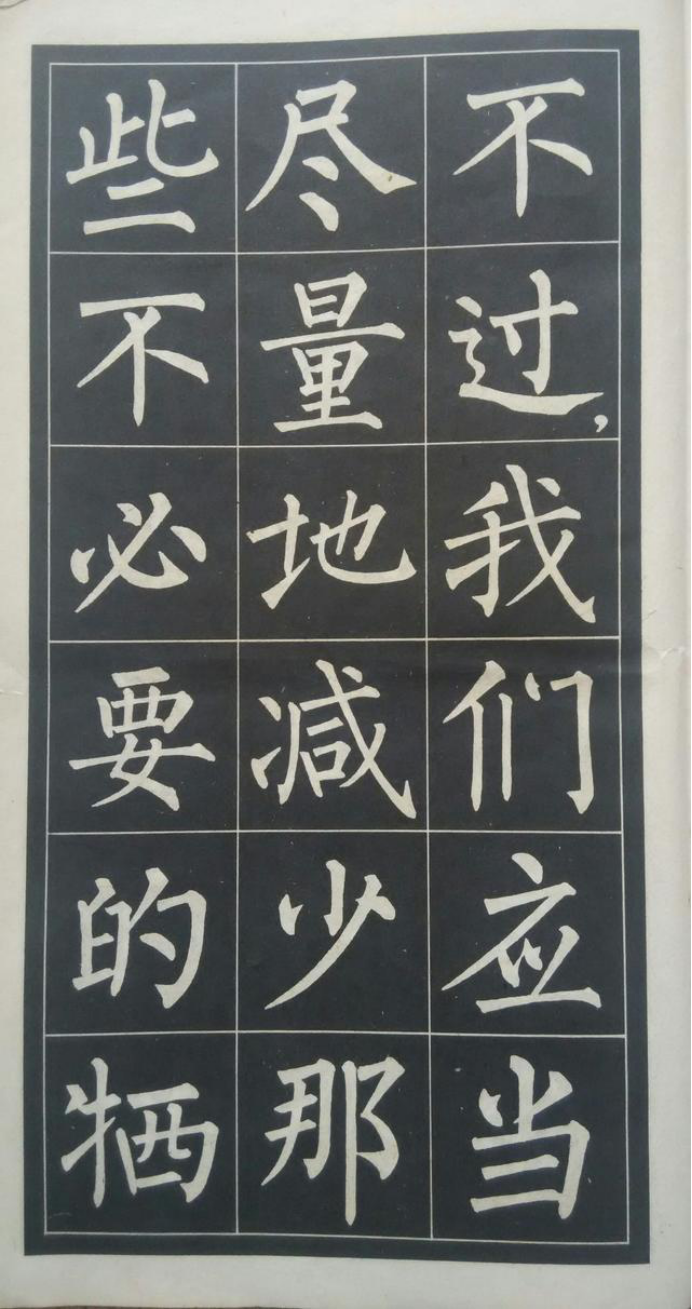 不过,我们应当
尽量地减少那
些不必要的牺